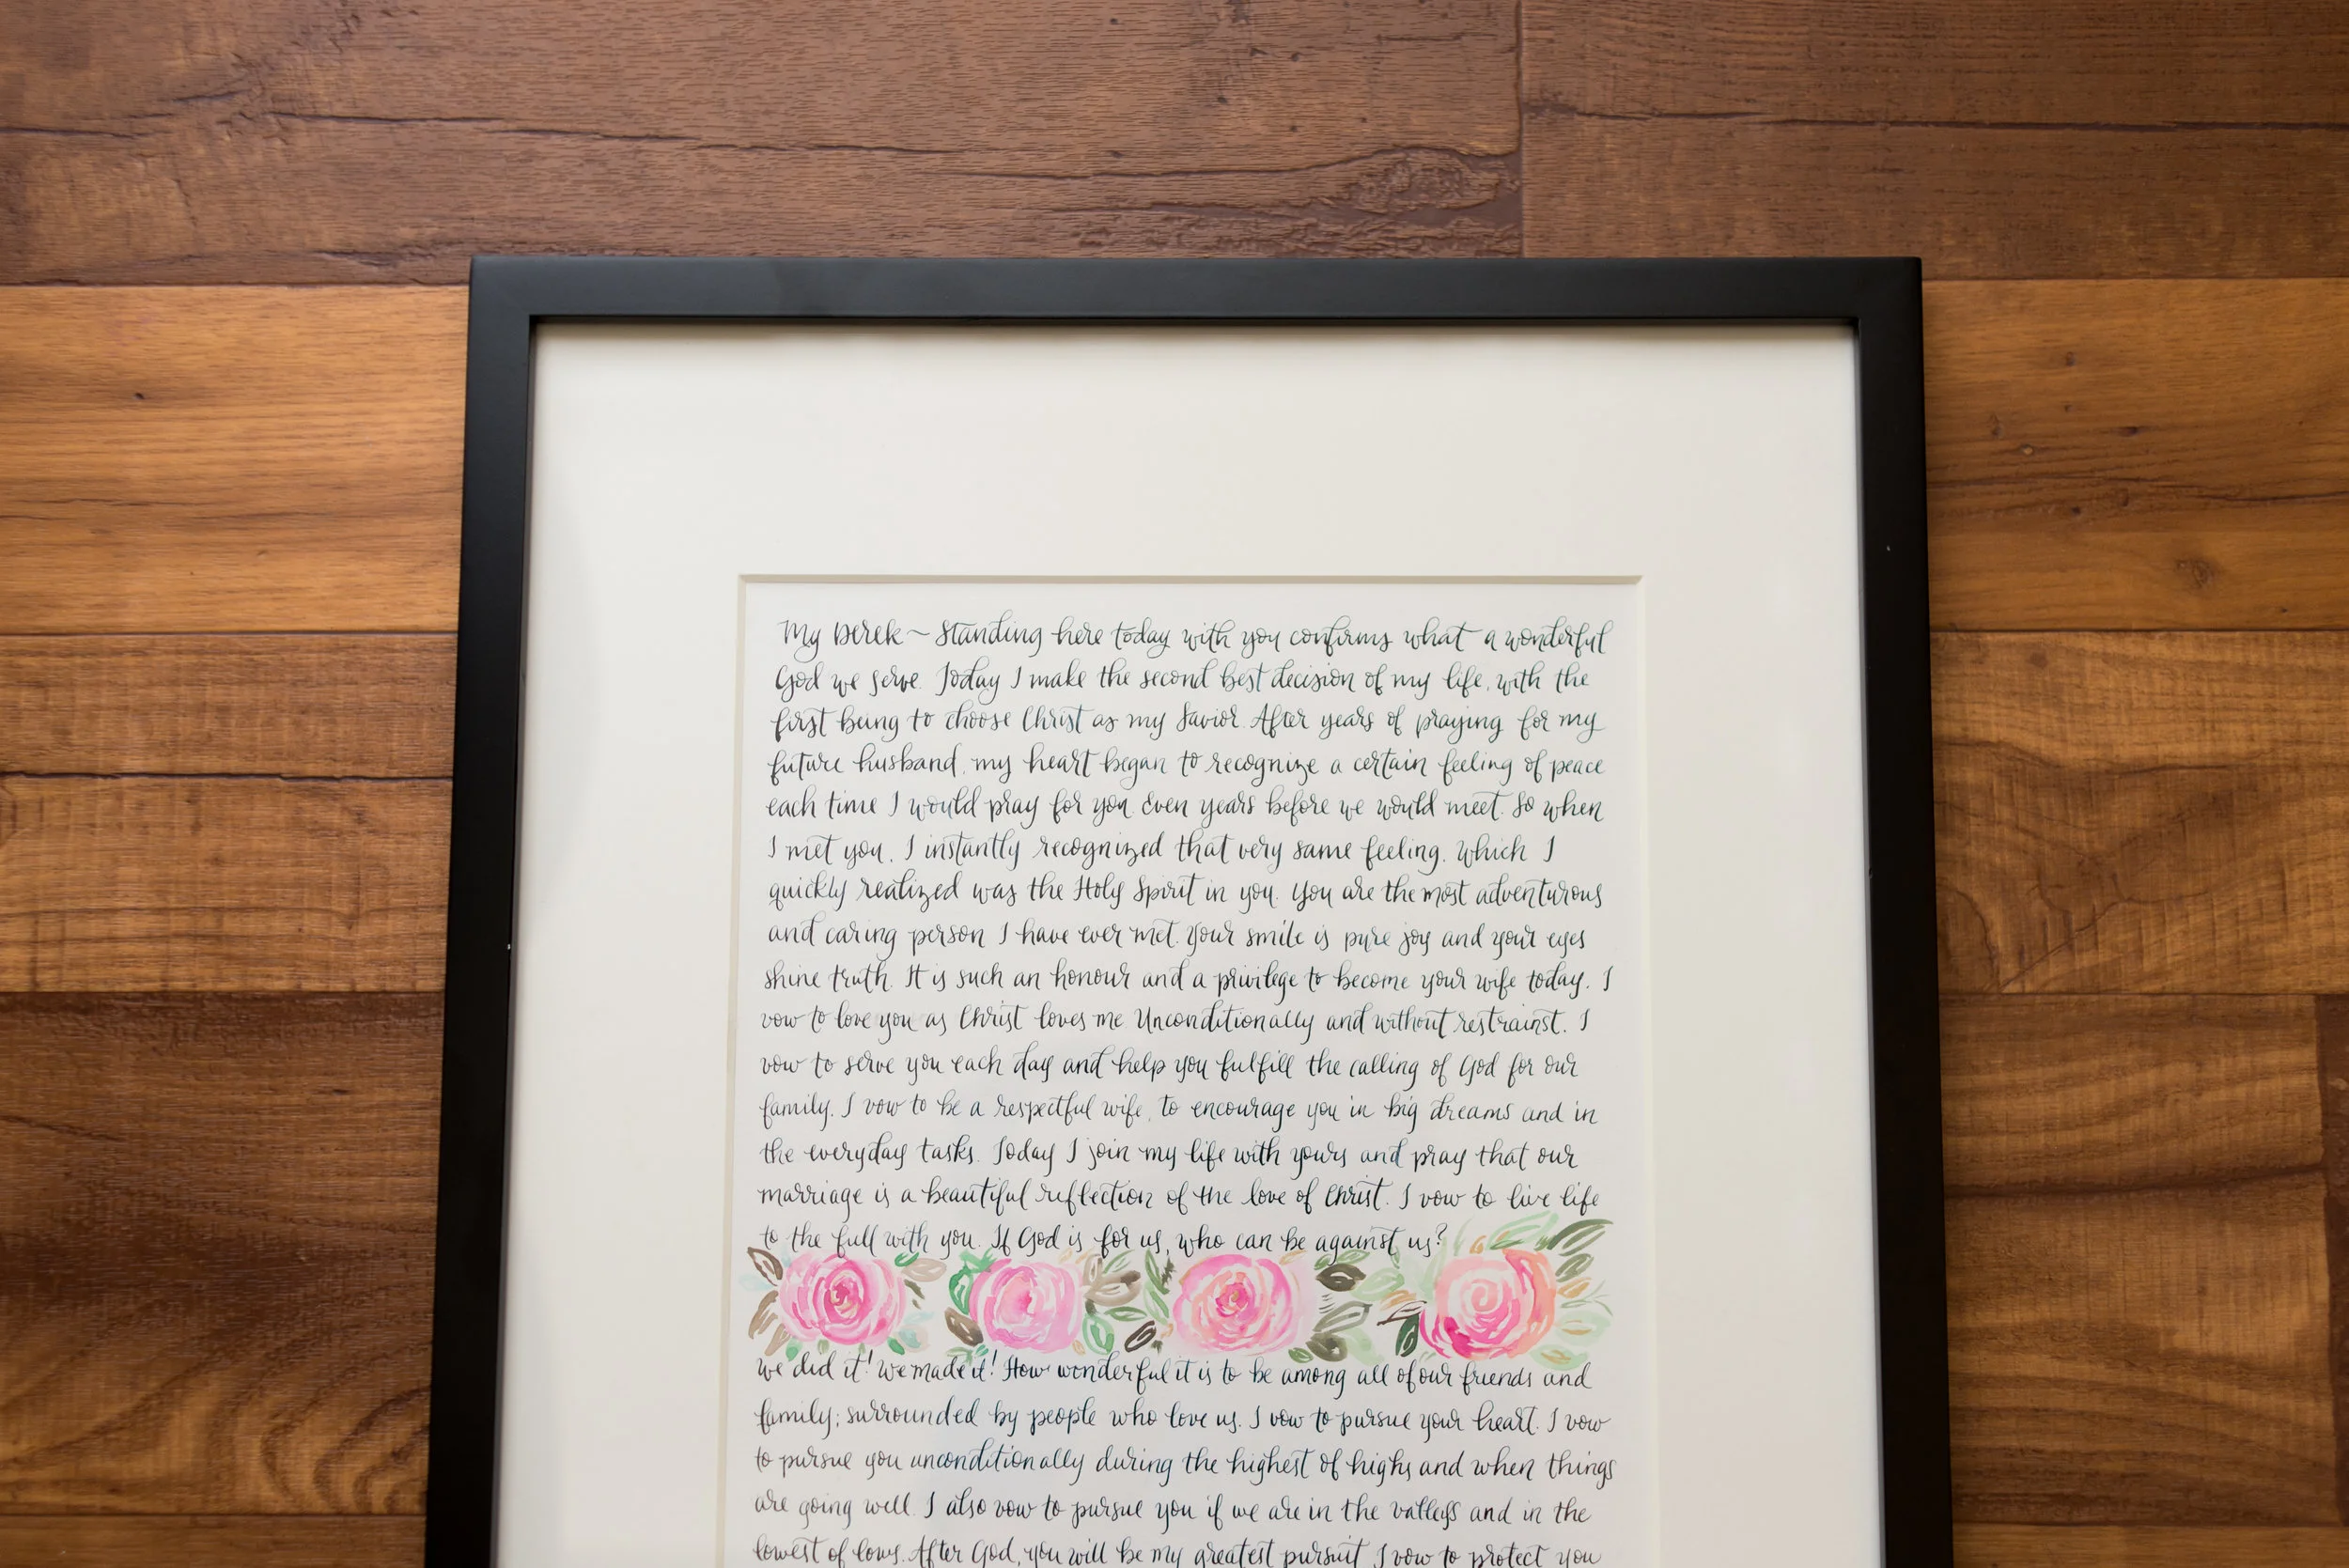 My Derek ~ Standing here today with you confirms what a wonderful
God we serve. Today I make the second best decision of my life, with the
first being to choose Christ as my Savior. After years of praying for my
future husband, my heart began to recognize a certain feeling of peace
each time I would pray for you even years before we would meet. So when
I met you, I instantly recognized that very same feeling, which I
quickly realized was the Holy Spirit in you. You are the most adventurous
and caring person I have ever met. Your smile is pure joy and your eyes
shine truth. It is such an honour and a privilege to become your wife today. I
vow to love you as Christ loves me unconditionally and without restrainst. I
vow to serve you each day and help you fulfill the calling of God for our
family. I vow to be a respectful wife, to encourage you in big dreams and in
the everyday tasks. Today I join my life with yours and pray that our
marriage is a beautiful reflection of the love of Christ. I vow to live life
to the full with you. If God is for us, who can be against us?
we did it! we made it! How wonderful it is to be among all of our friends and
family; surrounded by people who love us. I vow to pursue your heart. I vow
to pursue you unconditionally during the highest of highs and when things
are going well. I also vow to pursue you if we are in the valleys and in the
lowest of lows. After God, you will be my greatest pursuit. I vow to protect you